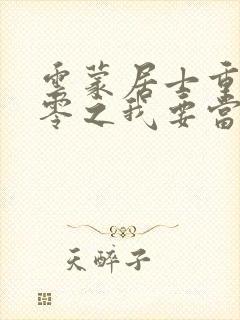 雲蒙居士重
零之我要當
天醉子